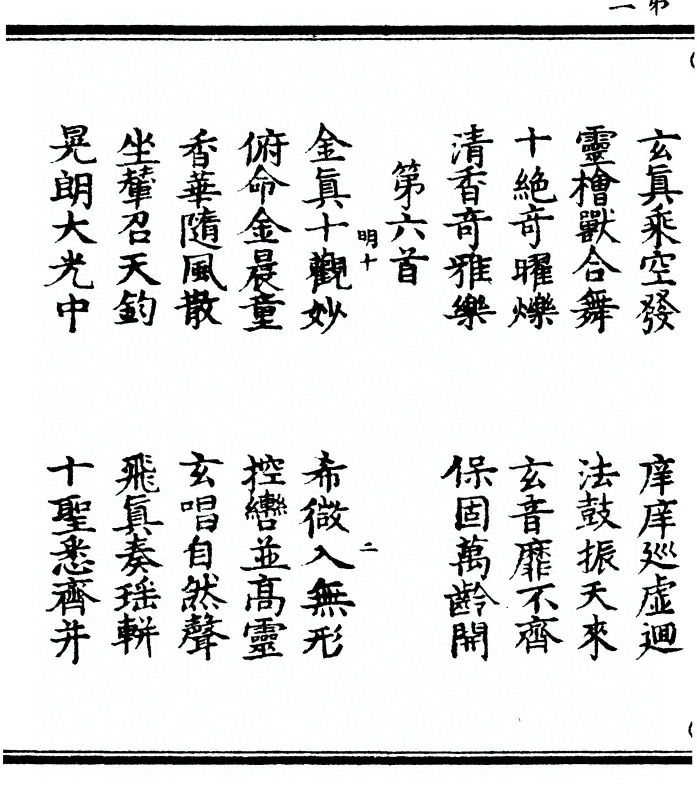 第一
玄眞乘空發　庠庠廵虛迴
靈檜獸合舞　法鼓振天來
十絶竒曜爍　玄音靡不齊
清香竒雅樂　保固萬齡開
第六首
明十　二
金眞十觀妙　希微入無形
俯命金晨童　控轡並高靈
香華隨風散　玄唱自然聲
坐輦召天鈞　飛眞奏瑶軿
晃朗大光中　十聖悉齊并